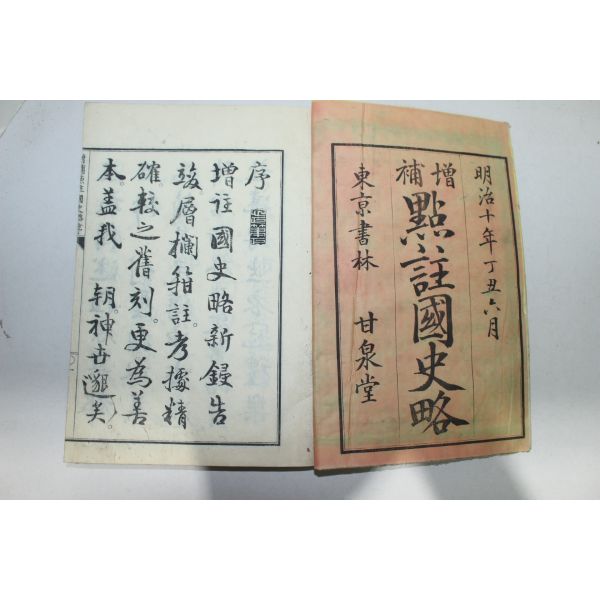 明治十年丁丑六月
增補
點註國史略
東京書林 甘泉堂
序
增註國史略新鐫告
竣層欄箝註考據精
確較之舊刻更為善
本蓋我 朝神古邈矣